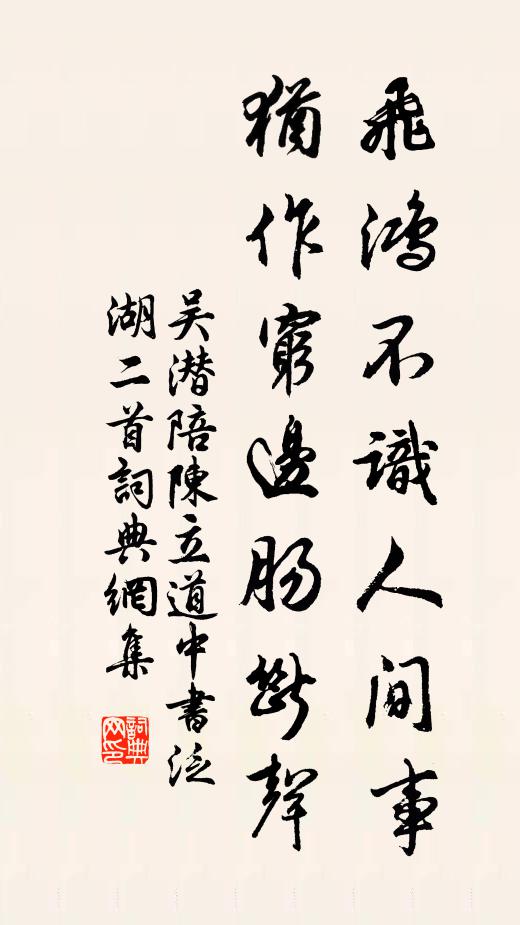 飛鴻不識人間事
猶作窮邊腸斷聲
吳潛陪陳立道中書泛
湖二首詞典網集
詞典
网印